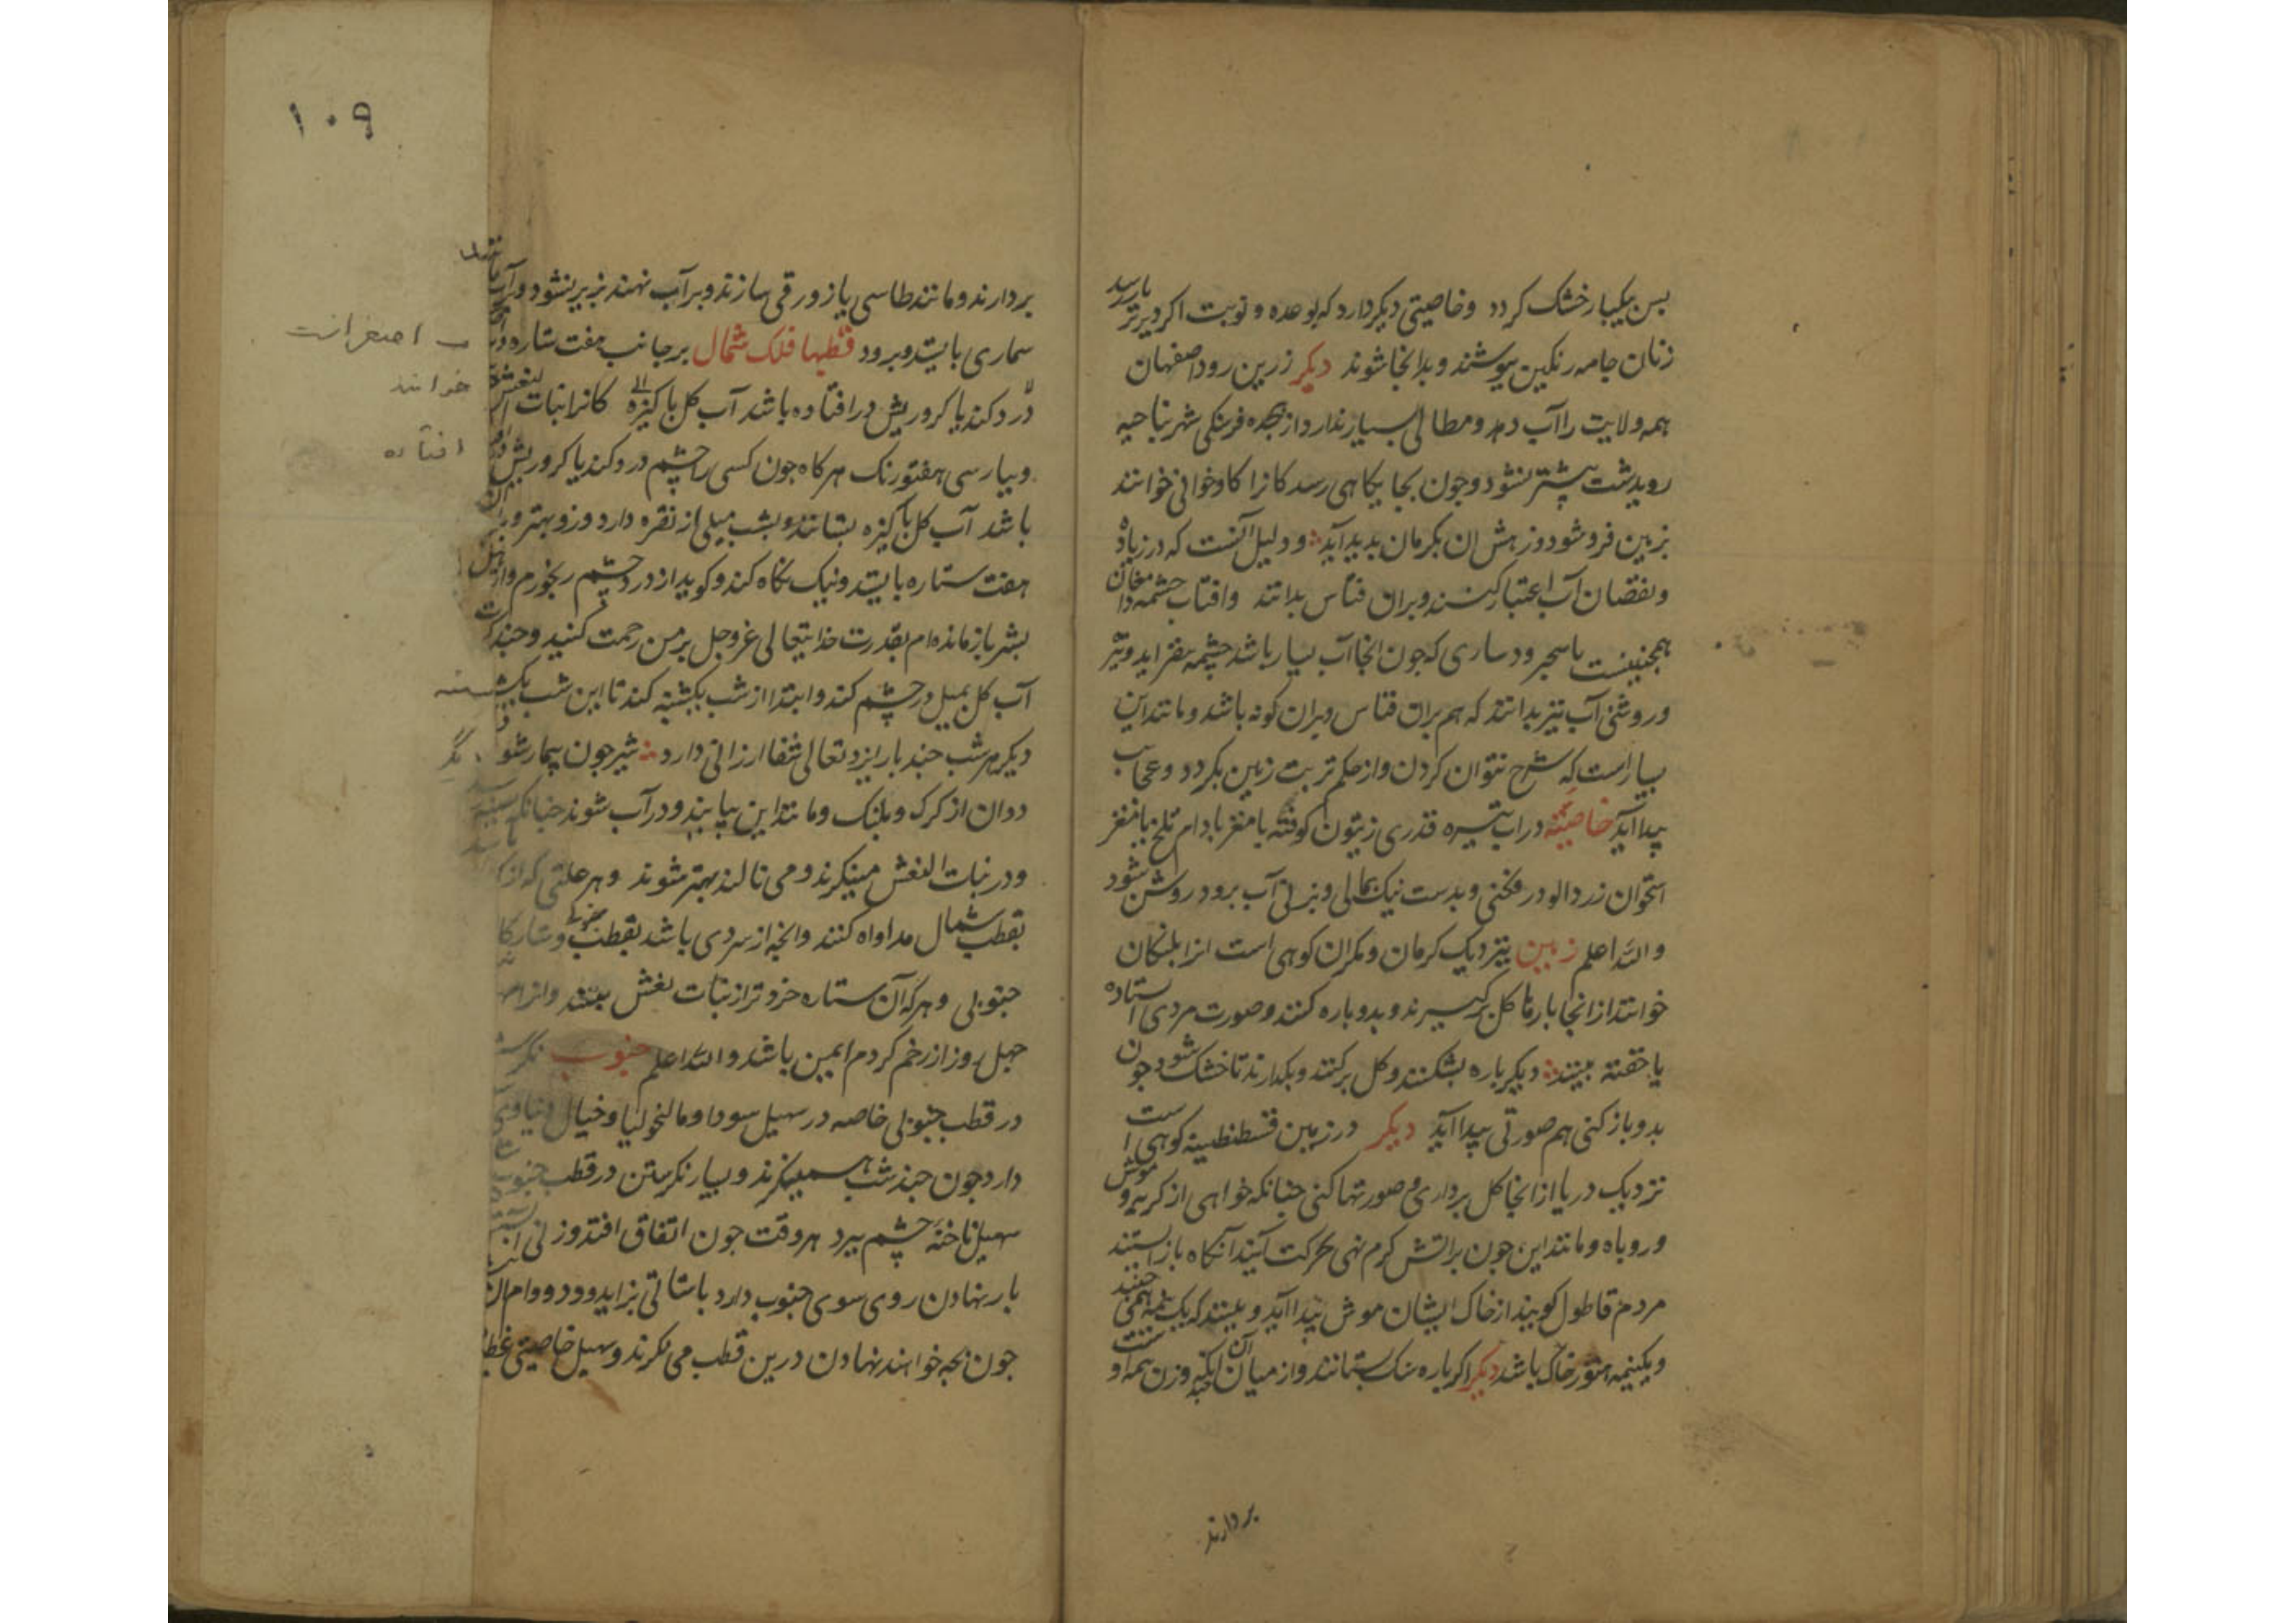 پس یکبار خشک کردد وخاصیتی دیکر دارد که بوعده و نوبت اکر دیرتر بارسد
زنان جامه رنکین بپوشند و بدانجا شوند دیکر زرین رود اصفهان
همه ولایت را آب دهد ومطالی بسیار ندارد از هجده فرسنکی شهر بناحیه
رویدشت بیشتر نشود وجون بجایکاهی رسد کانرا کاوخوانی خوانند
بزمین فرو شود وزهش ان بکرمان بدید آید و دلیل آنست که در زیاده
ونقصان آب اعتبار کنند وبران قیاس بدانند وافتاب چشمه دامغان
همچنینست باسجرود ساری که جون انجا آب بسیار باشد چشمه بفزاید وتیر
وروشنی آب نیز بدانند که هم بران قیاس وبران کونه باشد ومانند این
بسیار است که شرح نتوان کردن واز حکم تربت زمین بکردد وعجایب
پیدا آید خاصیته در اب تیره قدری زیتون کوفته یا مغز بادام تلخ یا مغز
استخوان زردالو درفکنی وبدست نیک بمالی وبزنی آب برود روشن شود
والله اعلم زمین بنزدیک کرمان ومکران کوهی است انرا بلنکان
خوانند از انجا بارها کل برکیرند وبدو باره کنند وصورت مردی استاده
یا خفته ببینند دیکرباره بشکنند وکل برکنند وبکدارند تا خشک شود جون
بدو باز کنی هم صورتی پیدا آید دیکر در زمین قسطنطینه کوهی است
نزدیک دریا از انجا کل برداری وصورتها کنی جنانکه خواهی از کربه و موش
وروباه ومانند این جون براتش کرم نهی بحرکت آیند آنکاه باز ایستند
مردم قاطول کویند از خاک ایشان موش پیدا آید و ببینند که یک نیمه همی جنبد
ویکنیمه هنوز خاک باشد دیکر اکر باره سنک بستانند واز میان آن انکه وزن همه او
بردارند
۱۰۹
بردارند ومانند طاسی یا زورقی سازند وبر آب نهند بزیر نشود وآب
سماری بایستد وبرود قطبها فلک شمال بر جانب هفت ستاره
درد کند یا کرو ریش درافتاده باشد آب کل باکیزه کانرا بنات النعش
وبپارسی هفتورنک هرکاه جون کسی را چشم درد کند یا کرو ریش
باشد آب کل باکیزه بستانند وبشب میلی از نقره دارد وزو بهتر
هفت ستاره بایستد ونیک نکاه کند وکوید از درد چشم رنجورم واز
بشر باز مانده ام بقدرت خدایتعالی عزوجل برمن رحمت کنید وچند کرت
آب کل بمیل در چشم کند وابتدا از شب یکشنبه کند تا این شب یکشنبه
دیکر هر شب چند بار ایزد تعالی شفا ارزانی دارد شیر جون بیمار شود
ددان از کرک وپلنک ومانند این بیایند ودر آب شوند جنانکه
ودر بنات النعش مینکرند ومی نالند بهتر شوند وهر علتی که از
بقطب شمال مداواه کنند وانچه از سردی باشد بقطب جنوبی
جنوبی وهرکه آن ستاره خردتر از بنات نعش ببیند
چهل روز از زخم کژدم ایمن باشد والله اعلم جنوب نکرستن
در قطب جنوبی خاصه در سهیل سودا ومالنخولیا وخیال
دارد جون چند شب همی نکرند وبسیار نکرستن در قطب جنوب
سهیل ناخنه چشم ببرد هر وقت جون اتفاق افتد وزنی
بار نهادن روی سوی جنوب دارد باسانی بزاید
جون بچه خواهند نهادن درین قطب می نکرند وسهیل خاصیتی
اصغر است
خوانند
افتاده